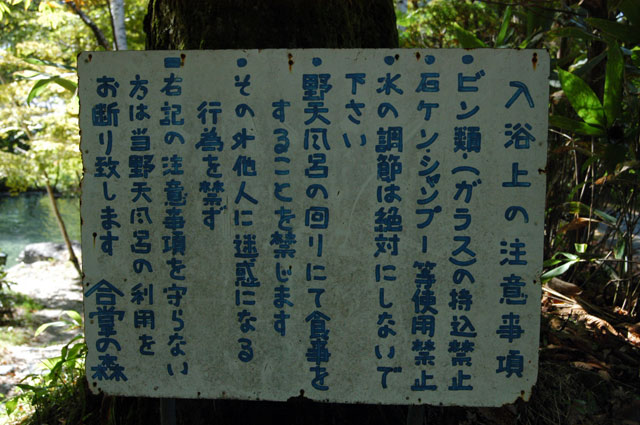 入浴上の注意事項
・ビン類・(ガラス)の持込禁止
・石ケン・シャンプー等使用禁止
・水の調節は絶対にしないで
下さい
・野天風呂の回りにて食事を
することを禁じます
・その外他人に迷惑になる
行為を禁ず
■右記の注意事項を守らない
方は当野天風呂の利用を
お断り致します 合掌の森